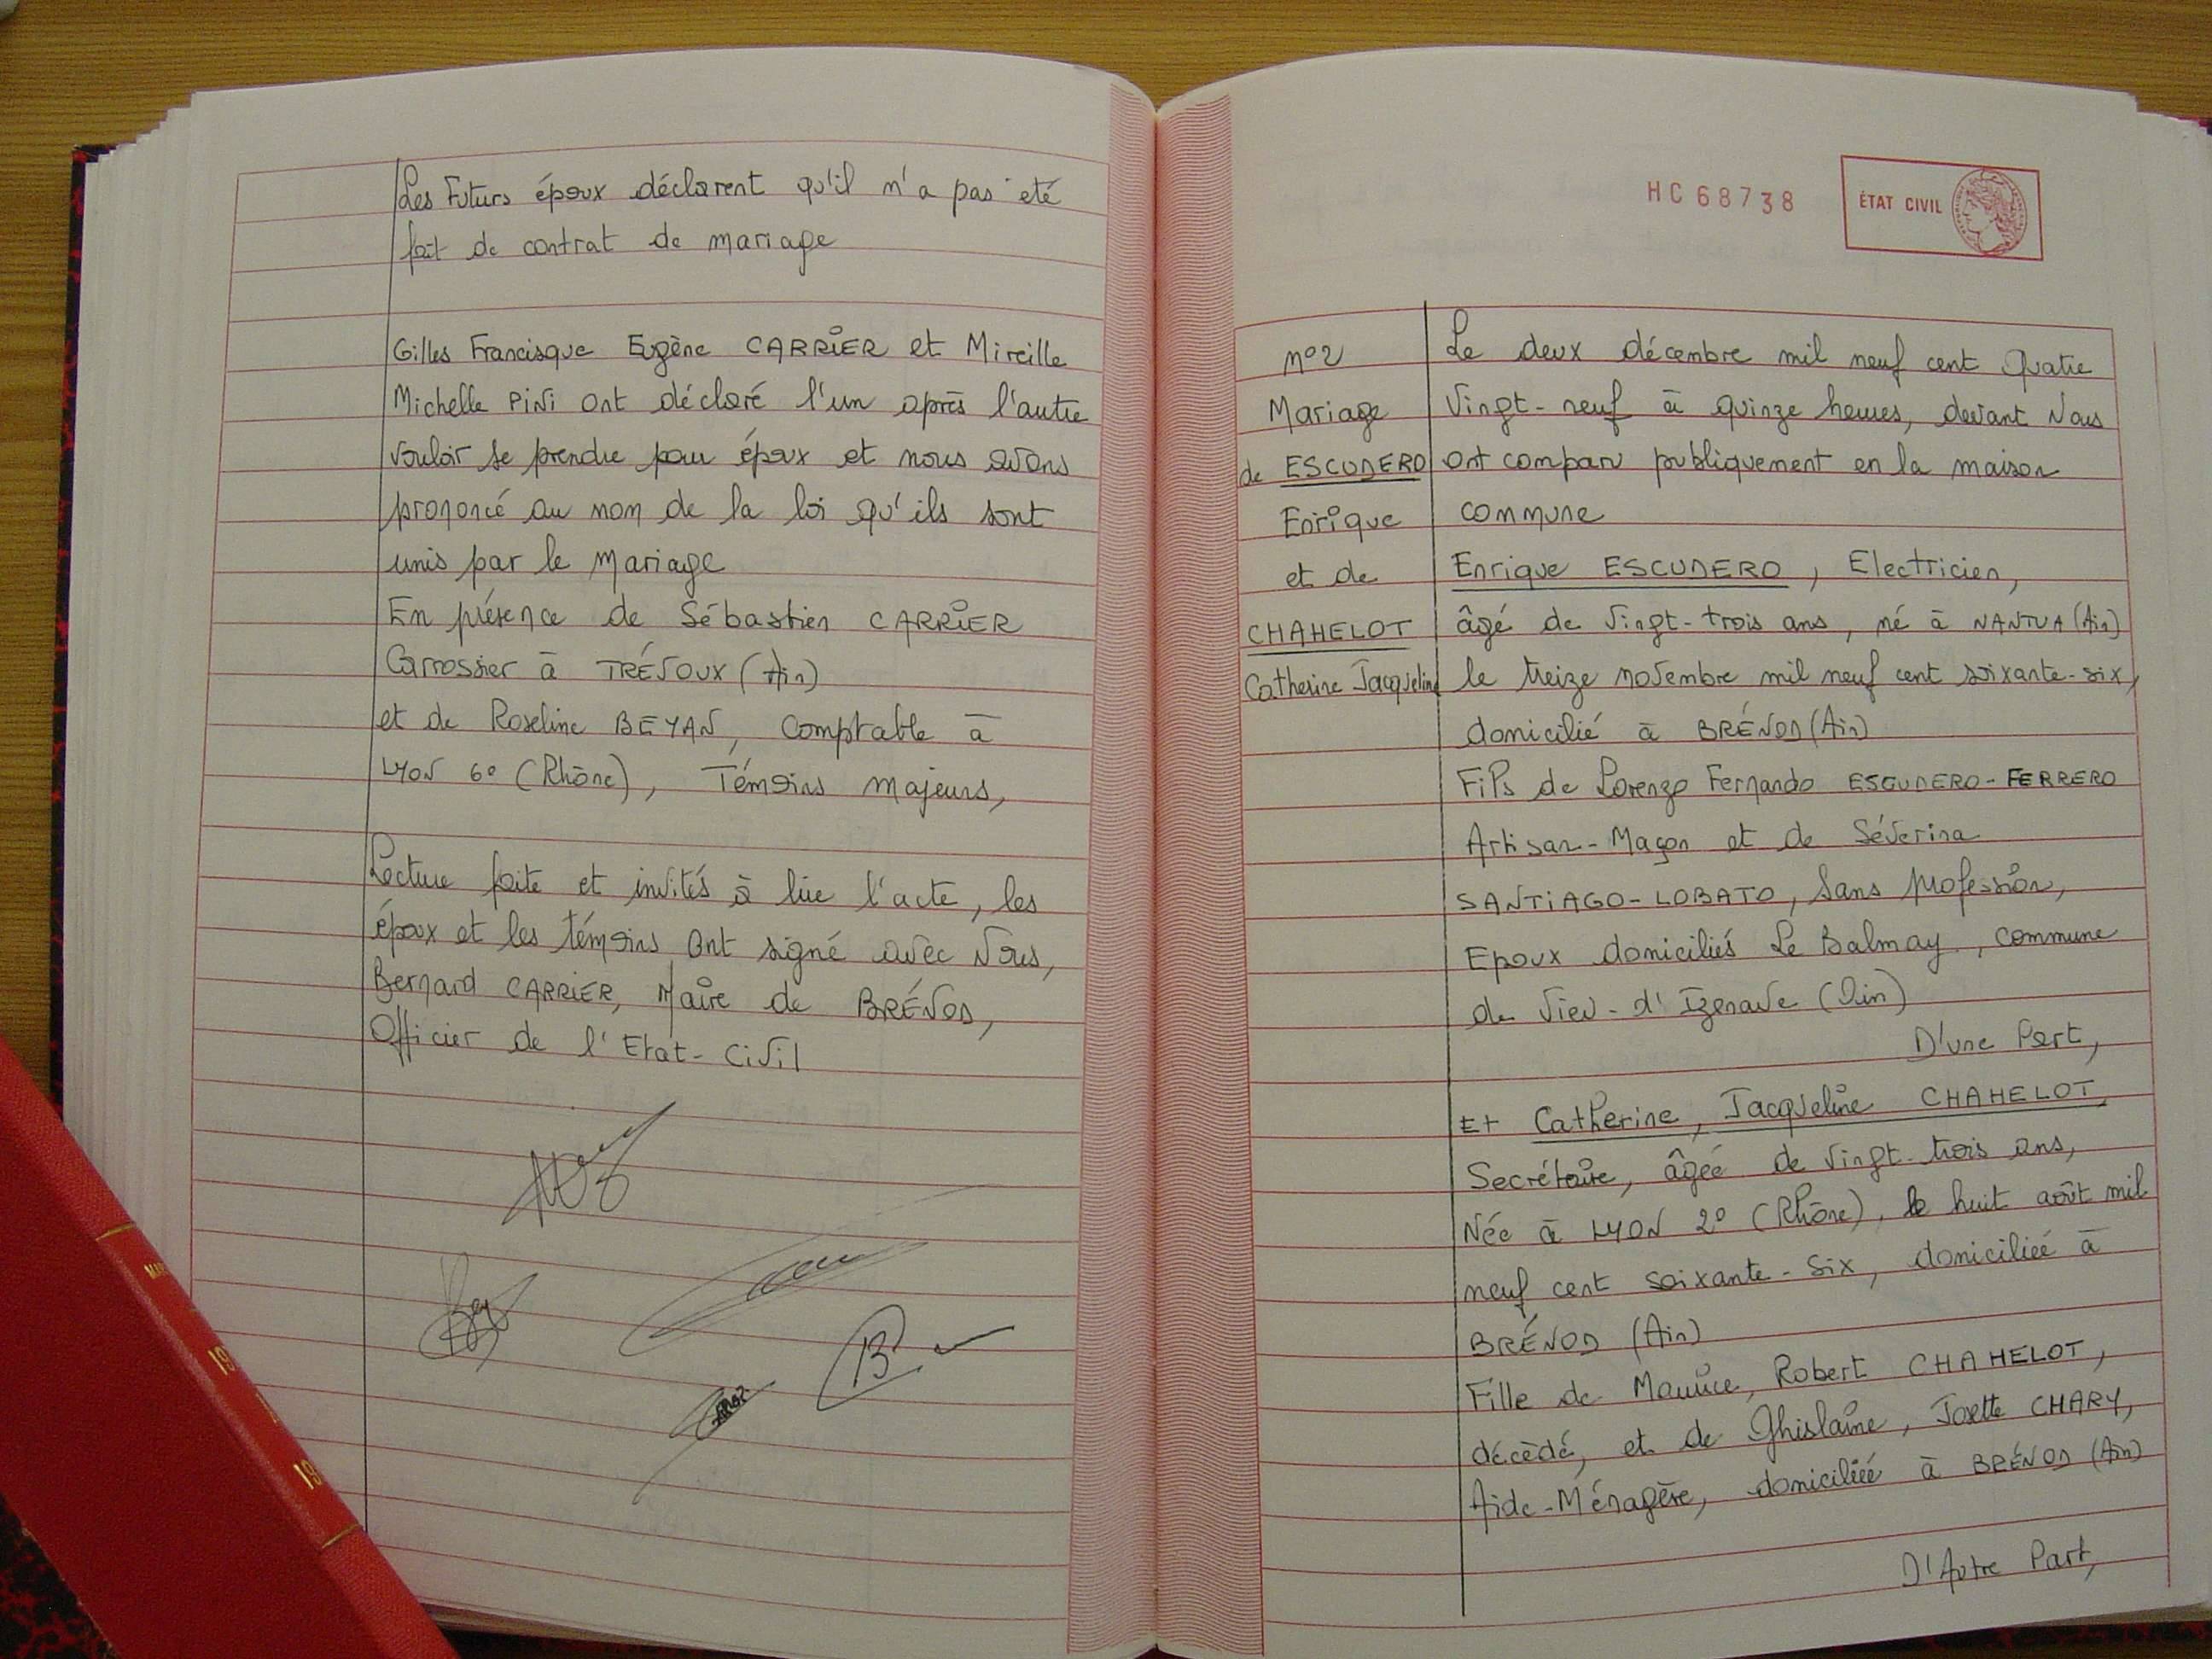 Les Futurs époux déclarent qu'il n'a pas été
fait de contrat de mariage
Gilles Francisque Eugène CARRIER et Mireille
Michelle PINI ont déclaré l'un après l'autre
vouloir se prendre pour époux et nous avons
prononcé au nom de la loi qu'ils sont
unis par le Mariage
En présence de Sébastien CARRIER
Carrossier à TRÉVOUX (Ain)
et de Roseline BEYAN, Comptable à
LYON 6° (Rhône), Témoins majeurs,
Lecture faite et invités à lire l'acte, les
époux et les témoins ont signé avec Nous,
Bernard CARRIER, Maire de BRÉNOD,
Officier de l'Etat-Civil
HC 68738
ÉTAT CIVIL
n°2
Mariage
de ESCUDERO
Enrique
et de
CHAHELOT
Catherine Jacqueline
Le deux décembre mil neuf cent Quatre
Vingt-neuf à quinze heures, devant Nous
ont comparu publiquement en la maison
commune
Enrique ESCUDERO, Electricien,
âgé de Vingt-trois ans, né à NANTUA (Ain)
le treize novembre mil neuf cent soixante-six,
domicilié à BRÉNOD (Ain)
Fils de Lorenzo Fernando ESCUDERO-FERRERO
Artisan-Maçon et de Séverina
SANTIAGO-LOBATO, Sans profession,
Epoux domiciliés Le Balmay, commune
de Vieu-d'Izenave (Ain)
D'une Part,
Et Catherine, Jacqueline CHAHELOT,
Secrétaire, âgée de Vingt-trois ans,
Née à LYON 2° (Rhône), le huit août mil
neuf cent soixante-six, domiciliée à
BRÉNOD (Ain)
Fille de Maurice, Robert CHAHELOT,
décèdé, et de Ghislaine, Josette CHARY,
Aide-Ménagère, domiciliée à BRÉNOD (Ain)
D'Autre Part,